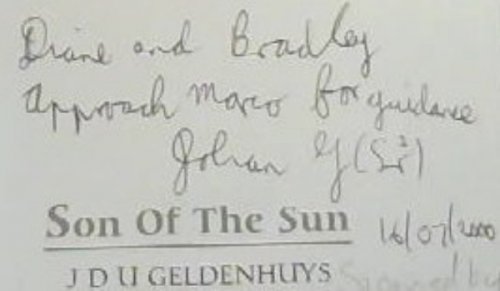 Diane and Bradley
Approach Marco for guidance
Johan G (Sr)
Son Of The Sun 16/07/2000
J D U GELDENHUYS Scanned by